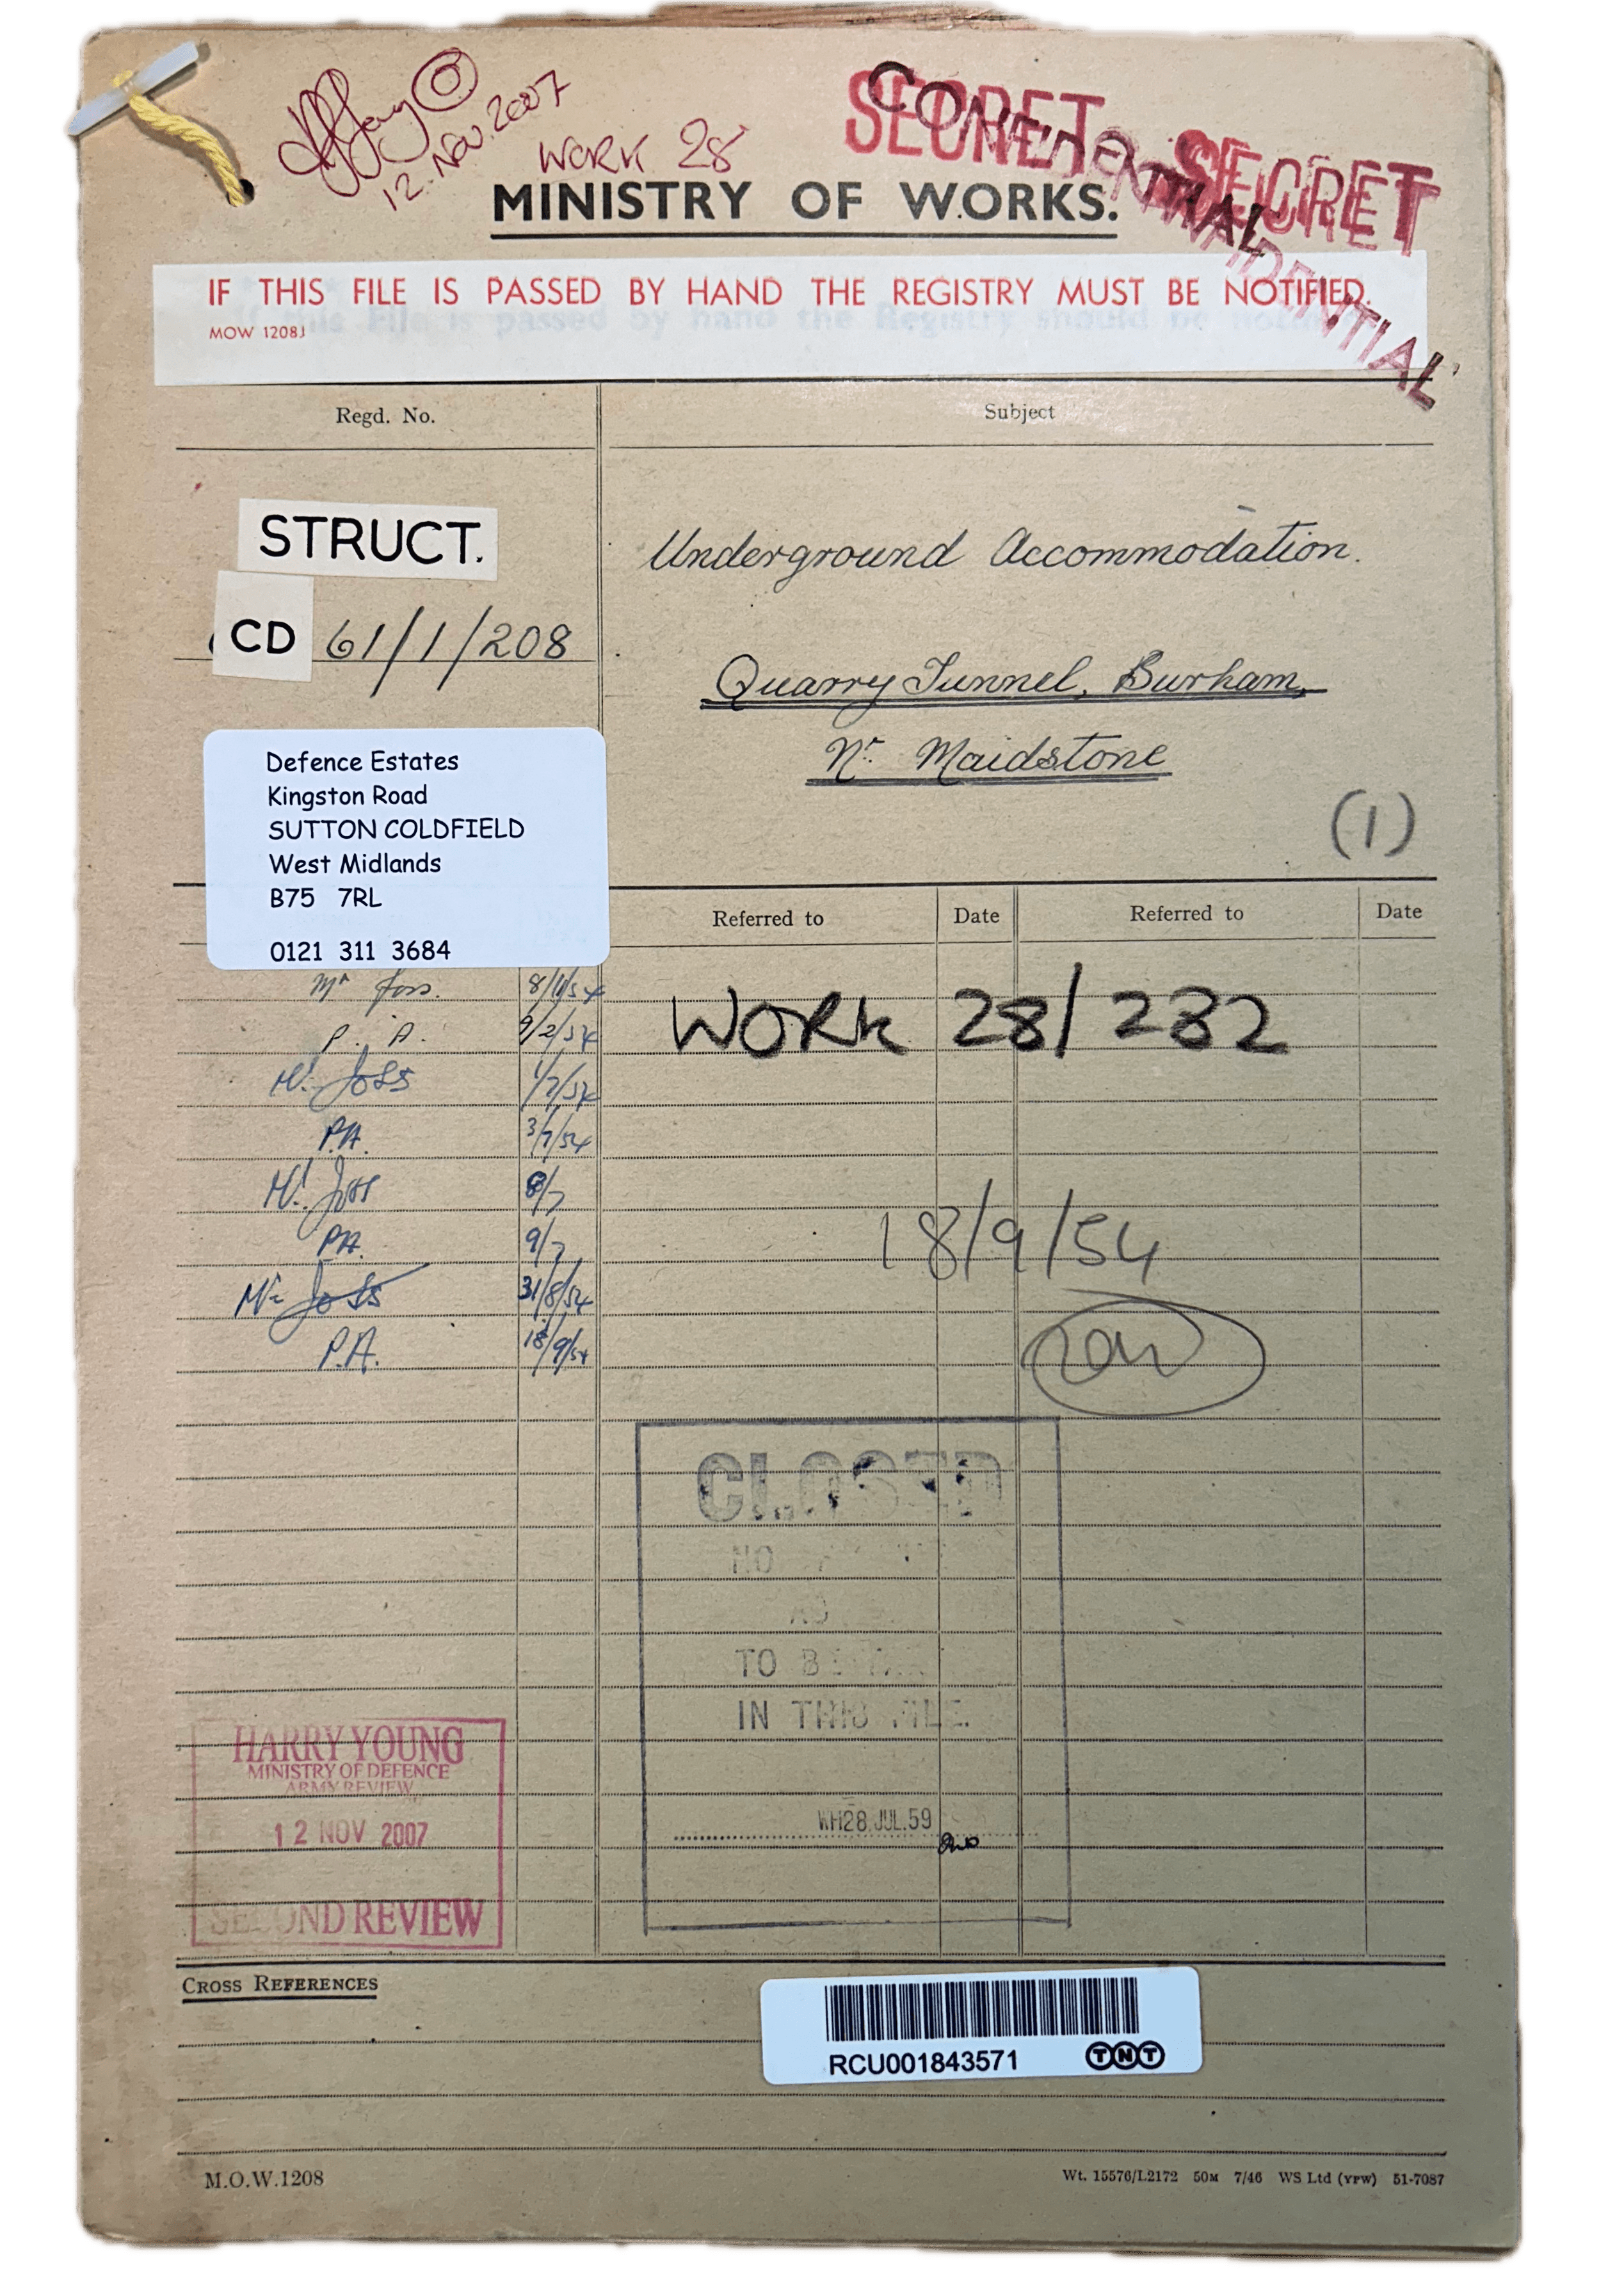 12. NOV. 2007
WORK 28
SECRET
CONFIDENTIAL
SECRET
CONFIDENTIAL
MINISTRY OF WORKS.
IF THIS FILE IS PASSED BY HAND THE REGISTRY MUST BE NOTIFIED.
If this File is passed by hand the Registry should be
MOW 1208J
Regd. No.
Subject
STRUCT.
CD 61/1/208
Underground Accommodation.
Quarry Tunnel, Burham,
Nr. Maidstone
(1)
Defence Estates
Kingston Road
SUTTON COLDFIELD
West Midlands
B75 7RL
0121 311 3684
Referred to Date Referred to Date
Mr Joss. 8/1/54
P. A. 9/2/54
Mr. Joss 1/7/54
P.A. 3/7/54
Mr. Joss 8/7
PA. 9/7
Mr. Joss 31/8/54
P.A. 18/9/54
WORK 28/232
18/9/54
CLOSED
NO
TO BE
IN THIS FILE.
WH28 JUL.59
HARRY YOUNG
MINISTRY OF DEFENCE
ARMY REVIEW
12 NOV 2007
SECOND REVIEW
CROSS REFERENCES
RCU001843571 TNT
M.O.W.1208
Wt. 15576/L2172 50M 7/46 WS Ltd (YPW) 51-7087